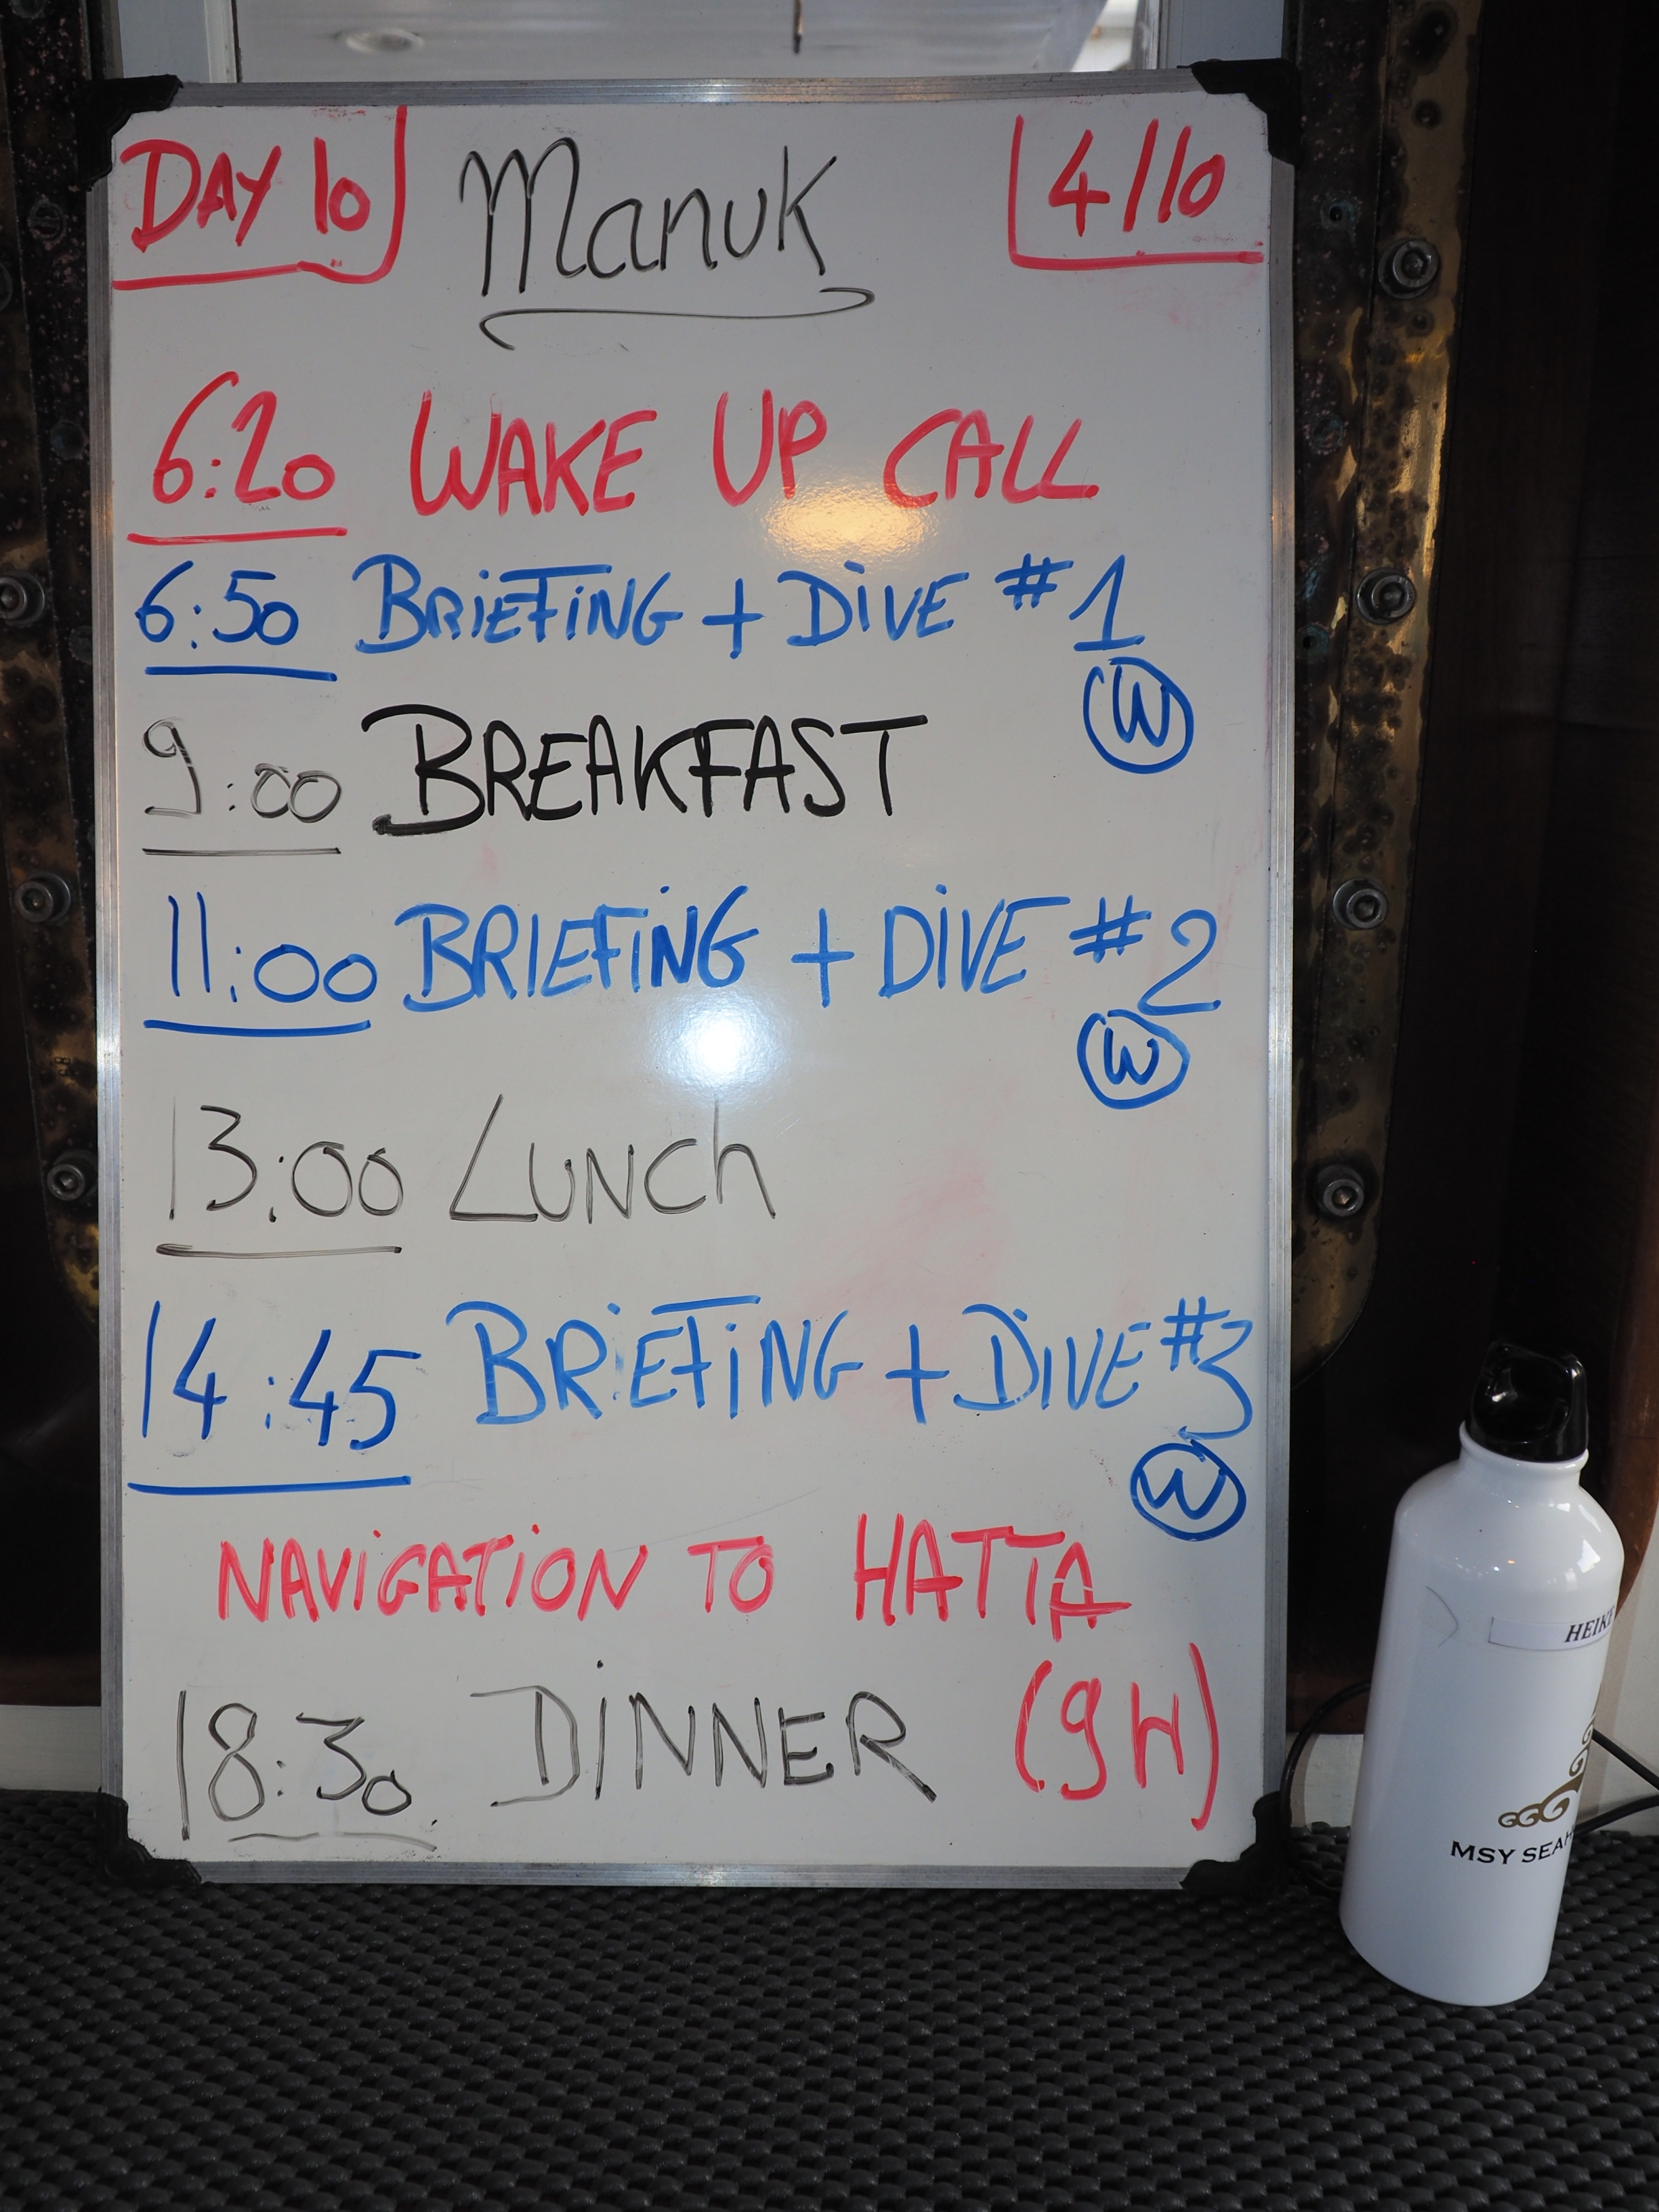 DAY 10 Manuk 4/10
6:20 WAKE UP CALL
6:50 BRIEFING + DIVE #1
W
9:00 BREAKFAST
11:00 BRIEFING + DIVE #2
W
13:00 LUNCh
14:45 BRIEFING + DIVE #3
W
NAVIGATION TO HATTA
18:30 DINNER (9H)
MSY